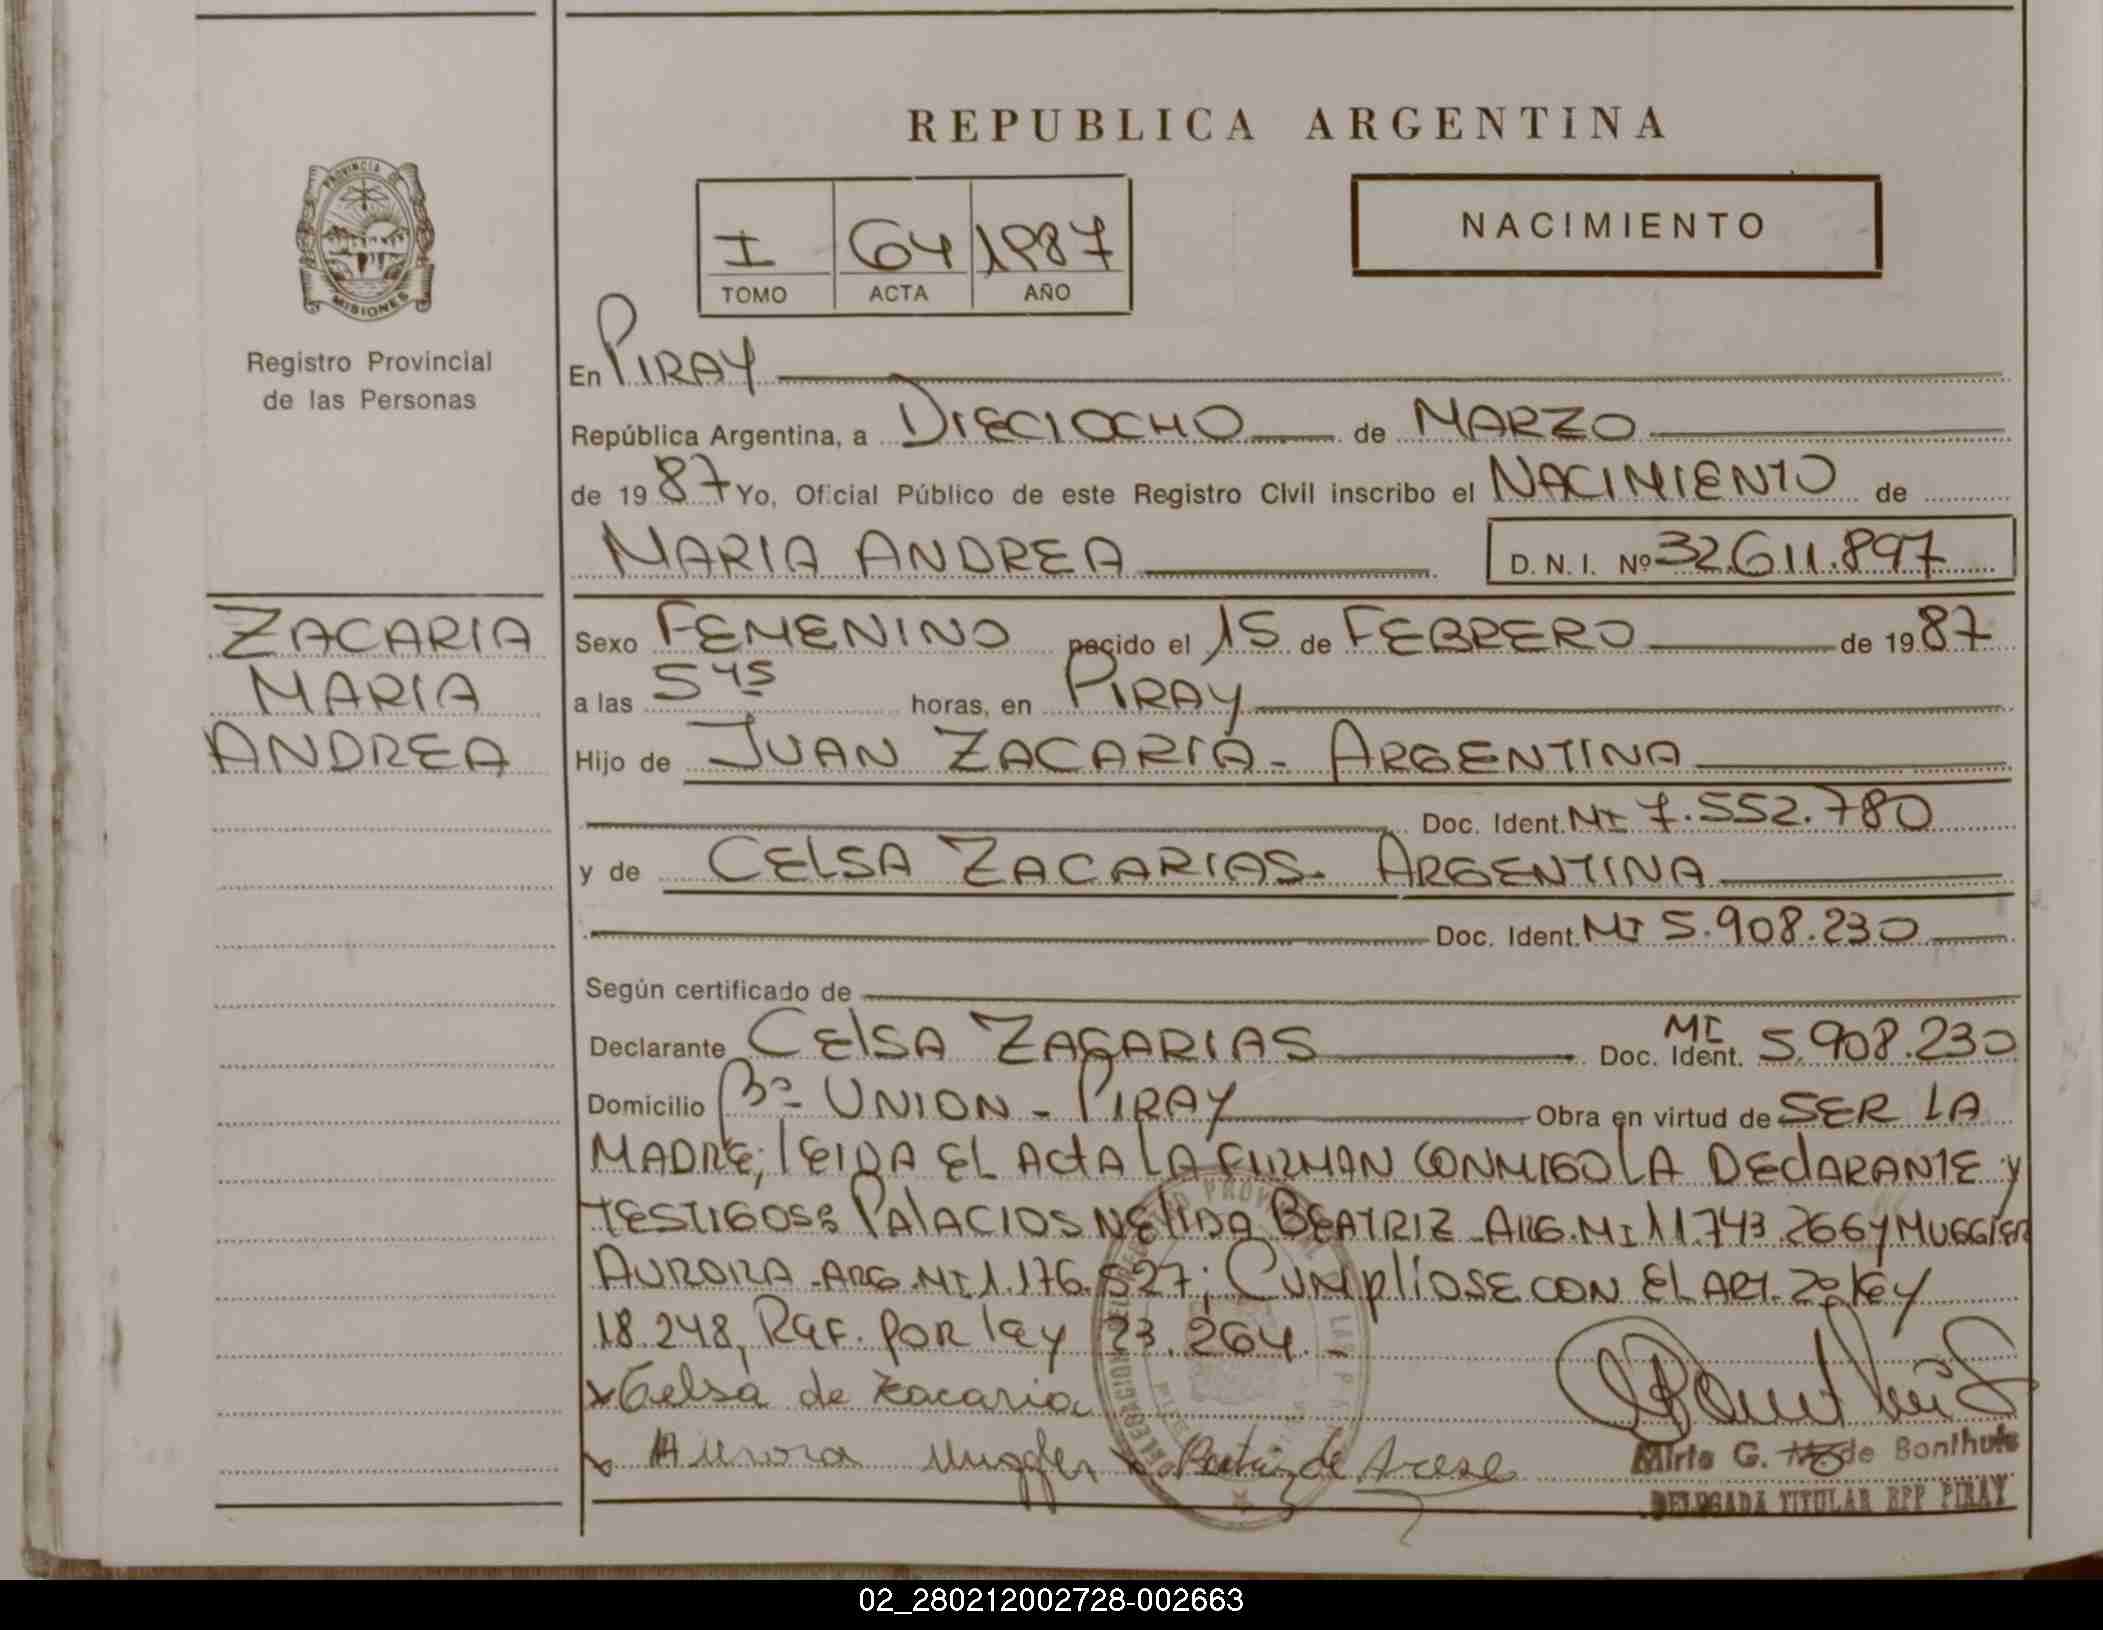 REPUBLICA ARGENTINA
PROVINCIA DE
MISIONES
Registro Provincial
de las Personas
I 64 1987
TOMO ACTA AÑO
NACIMIENTO
En PIRAY
República Argentina, a DIECIOCHO de MARZO
de 19 87 Yo, Oficial Público de este Registro Civil inscribo el NACIMIENTO de
MARIA ANDREA D. N. I. Nº 32.611.897
ZACARIA
MARIA
ANDREA
Sexo FEMENINO nacido el 15 de FEBRERO de 19 87
a las 5 45 horas, en PIRAY
Hijo de JUAN ZACARIA - ARGENTINA
Doc. Ident. MI 7.552.780
y de CELSA ZACARIAS - ARGENTINA
Doc. Ident. MI 5.908.230
Según certificado de
Declarante CELSA ZACARIAS Doc. Ident. MI 5.908.230
Domicilio Bº UNION - PIRAY Obra en virtud de SER LA
MADRE; LEIDA EL ACTA LA FIRMAN CONMIGO LA DECLARANTE y
TESTIGOS: PALACIOS NELIDA BEATRIZ - ARG. MI 11.743.266 y MUGGLER
AURORA - ARG. MI 1.176.527; CUMPLIOSE CON EL ART. 2º ley
18.248, REF. POR ley 23.264. -
x Celsa de Zacaria
x Aurora Muggler x Beatriz de Arese
Mirta G. de Bonthuis
DELEGADA TITULAR RPP PIRAY
02_280212002728-002663